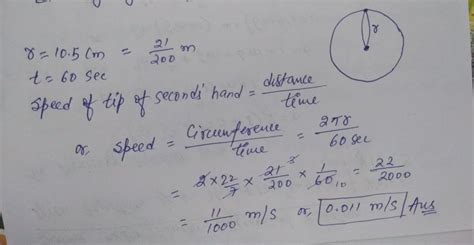 r = 10.5 Cm = 21/200 m
r
t = 60 Sec
Speed of tip of seconds' hand = distance/time
or, Speed = Circumference/time = 2πr/60 sec
= 2 × 22/7 × 21/200 × 1/60 = 22/2000
3
10
= 11/1000 m/s or, 0.011 m/s Ans